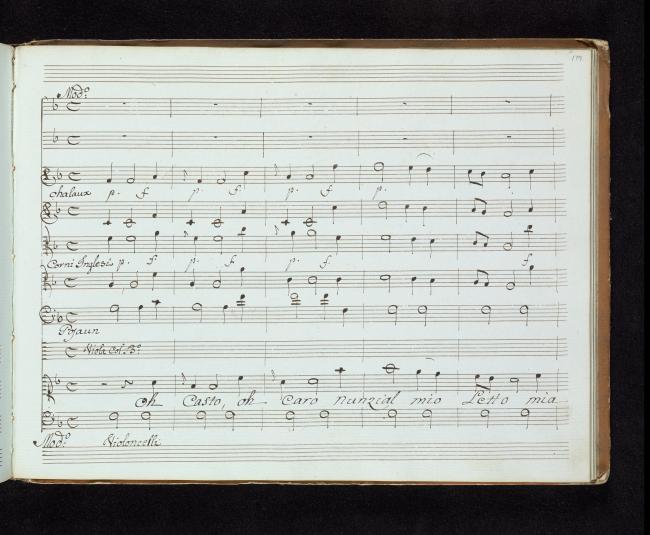 Mod.º
chalaux p. f p. f. p. f p.
Corni Inglesi p. f p. f. p. f. f
Viola Col B.º
oh Casto, oh Caro nunzial mio Letto mia
Mod.º Violoncelli